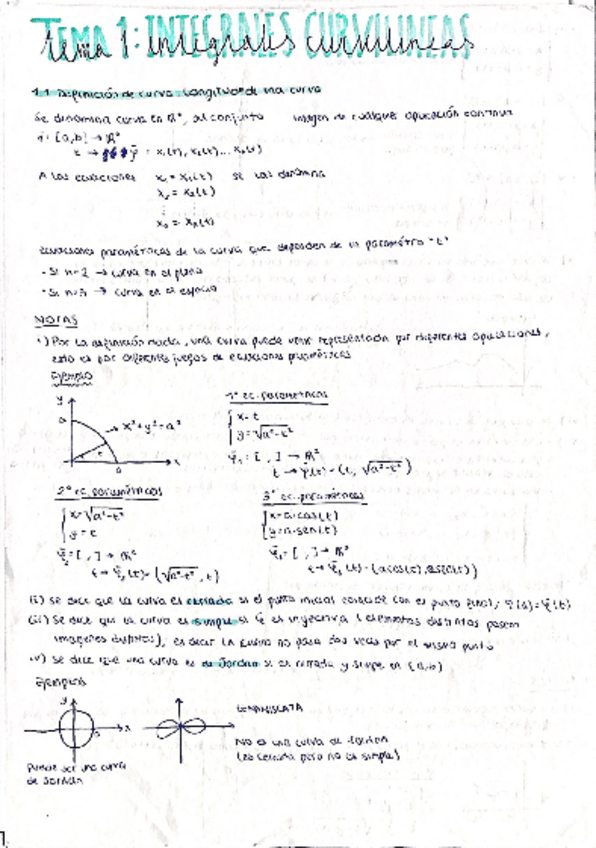 TEMA 1: INTEGRALES CURVILINEAS
1.1 Definición de curva. Longitud de una curva
Se denomina curva en R^n, al conjunto imagen de cualquier aplicación continua
: [a,b] → R^n
t → φ̄ = x₁(t), x₂(t)... xₙ(t)
A las ecuaciones x₁ = x₁(t) se las denomina
x₂ = x₂(t)
⋮
xₙ = xₙ(t)
ecuaciones paramétricas de la curva que dependen de un parámetro "t"
- Si n=2 → curva en el plano
- Si n=3 → curva en el espacio
NOTAS
i) Por la definición dada, una curva puede venir representada por diferentes aplicaciones,
esto es por diferentes juegos de ecuaciones paramétricas
Ejemplo
y
a
x²+y²=a²
t
a
x
1º ec. paramétricas
x=t
y=√a²-t²
φ̄₁=[ , ] → R²
t → φ̄₁(t)=(t, √a²-t²)
2º ec. paramétricas
x=√a²-t²
y=t
φ̄₂=[ , ] → R²
t → φ̄₂(t)=(√a²-t², t)
3º ec. paramétricas
x=a·cos(t)
y=a·sen(t)
=[ , ] → R²
t → (t)=(acos(t), asen(t))
ii) Se dice que la curva es cerrada si el punto inicial coincide con el punto final, φ̄(a)=φ̄(b)
iii) Se dice que la curva es simple si φ̄ es inyectiva (elementos distintos poseen
imágenes distintas), es decir la curva no pasa dos veces por el mismo punto
iv) Se dice que una curva es de Jordan si es cerrada y simple en (a,b)
Ejemplos
y
x
Puede ser una curva
de Jordan
LEMNISCATA
No es una curva de Jordan
(es cerrada pero no es simple)
1